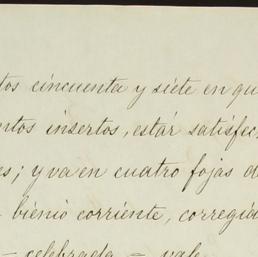 tos cincuenta y siete en qu
ntos insertos, estár satisfec
es; y va en cuatro fojas d
bienio corriente, corregid
— celebrada — vale